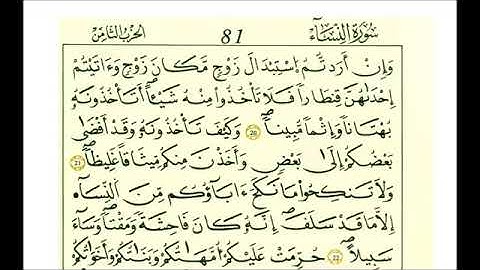 سورة النساء 81 الحزب الثامن
وَإِنْ أَرَدتُّمُ اسْتِبْدَالَ زَوْجٍ مَّكَانَ زَوْجٍ وَءَاتَيْتُمُ
إِحْدَىٰهُنَّ قِنطَاراً فَلَا تَأْخُذُوا مِنْهُ شَيْـًٔا أَتَاخُذُونَهُۥ
بُهْتَٰناً وَإِثْماً مُّبِيناً 20 وَكَيْفَ تَاخُذُونَهُۥ وَقَدْ أَفْضَىٰ
بَعْضُكُمُۥ إِلَىٰ بَعْضٍ وَأَخَذْنَ مِنكُم مِّيثَٰقاً غَلِيظاً 21
وَلَا تَنكِحُوا مَا نَكَحَ ءَابَآؤُكُم مِّنَ اَلنِّسَآءِ
إِلَّا مَا قَدْ سَلَفَ إِنَّهُۥ كَانَ فَٰحِشَةً وَمَقْتاً وَسَآءَ
سَبِيلاً 22 حُرِّمَتْ عَلَيْكُمُۥ أُمَّهَٰتُكُمْ وَبَنَاتُكُمْ وَأَخَوَٰتُكُمْ